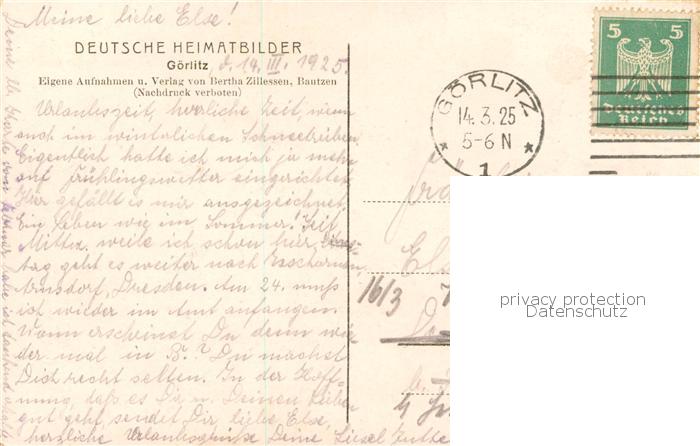 Meine liebe Else!
DEUTSCHE HEIMATBILDER
Görlitz, d. 14. III. 1925.
Eigene Aufnahmen u. Verlag von Bertha Zillessen, Bautzen
(Nachdruck verboten)
Urlaubszeit, herrliche Zeit, wenn
auch im winterlichen Schneetreiben.
Eigentlich hatte ich mich ja mehr
auf Frühlingswetter eingerichtet.
Hier gefällt es mir ausgezeichnet.
Ein Leben wie im Sommer! Seit
Mittw. weile ich schon hier,
tag geht es weiter nach
Arnsdorf, Dresden. Am 24. muss
ich wieder im Amt anfangen.
Wann erscheinst Du denn wie-
der mal in B.? Du machst
Dich recht selten. In der Hoff-
nung, daß es Dir u. Deinen Lieben
gut geht, sendet Dir, liebe Else,
herzliche Urlaubsgrüße Deine Liesel
Deine lb. Karte vom habe ich dankend erhalten
GÖRLITZ
14.3.25
5-6 N
* 1 *
5 5
Deutsches
Reich
16/3
privacy protection
Datenschutz